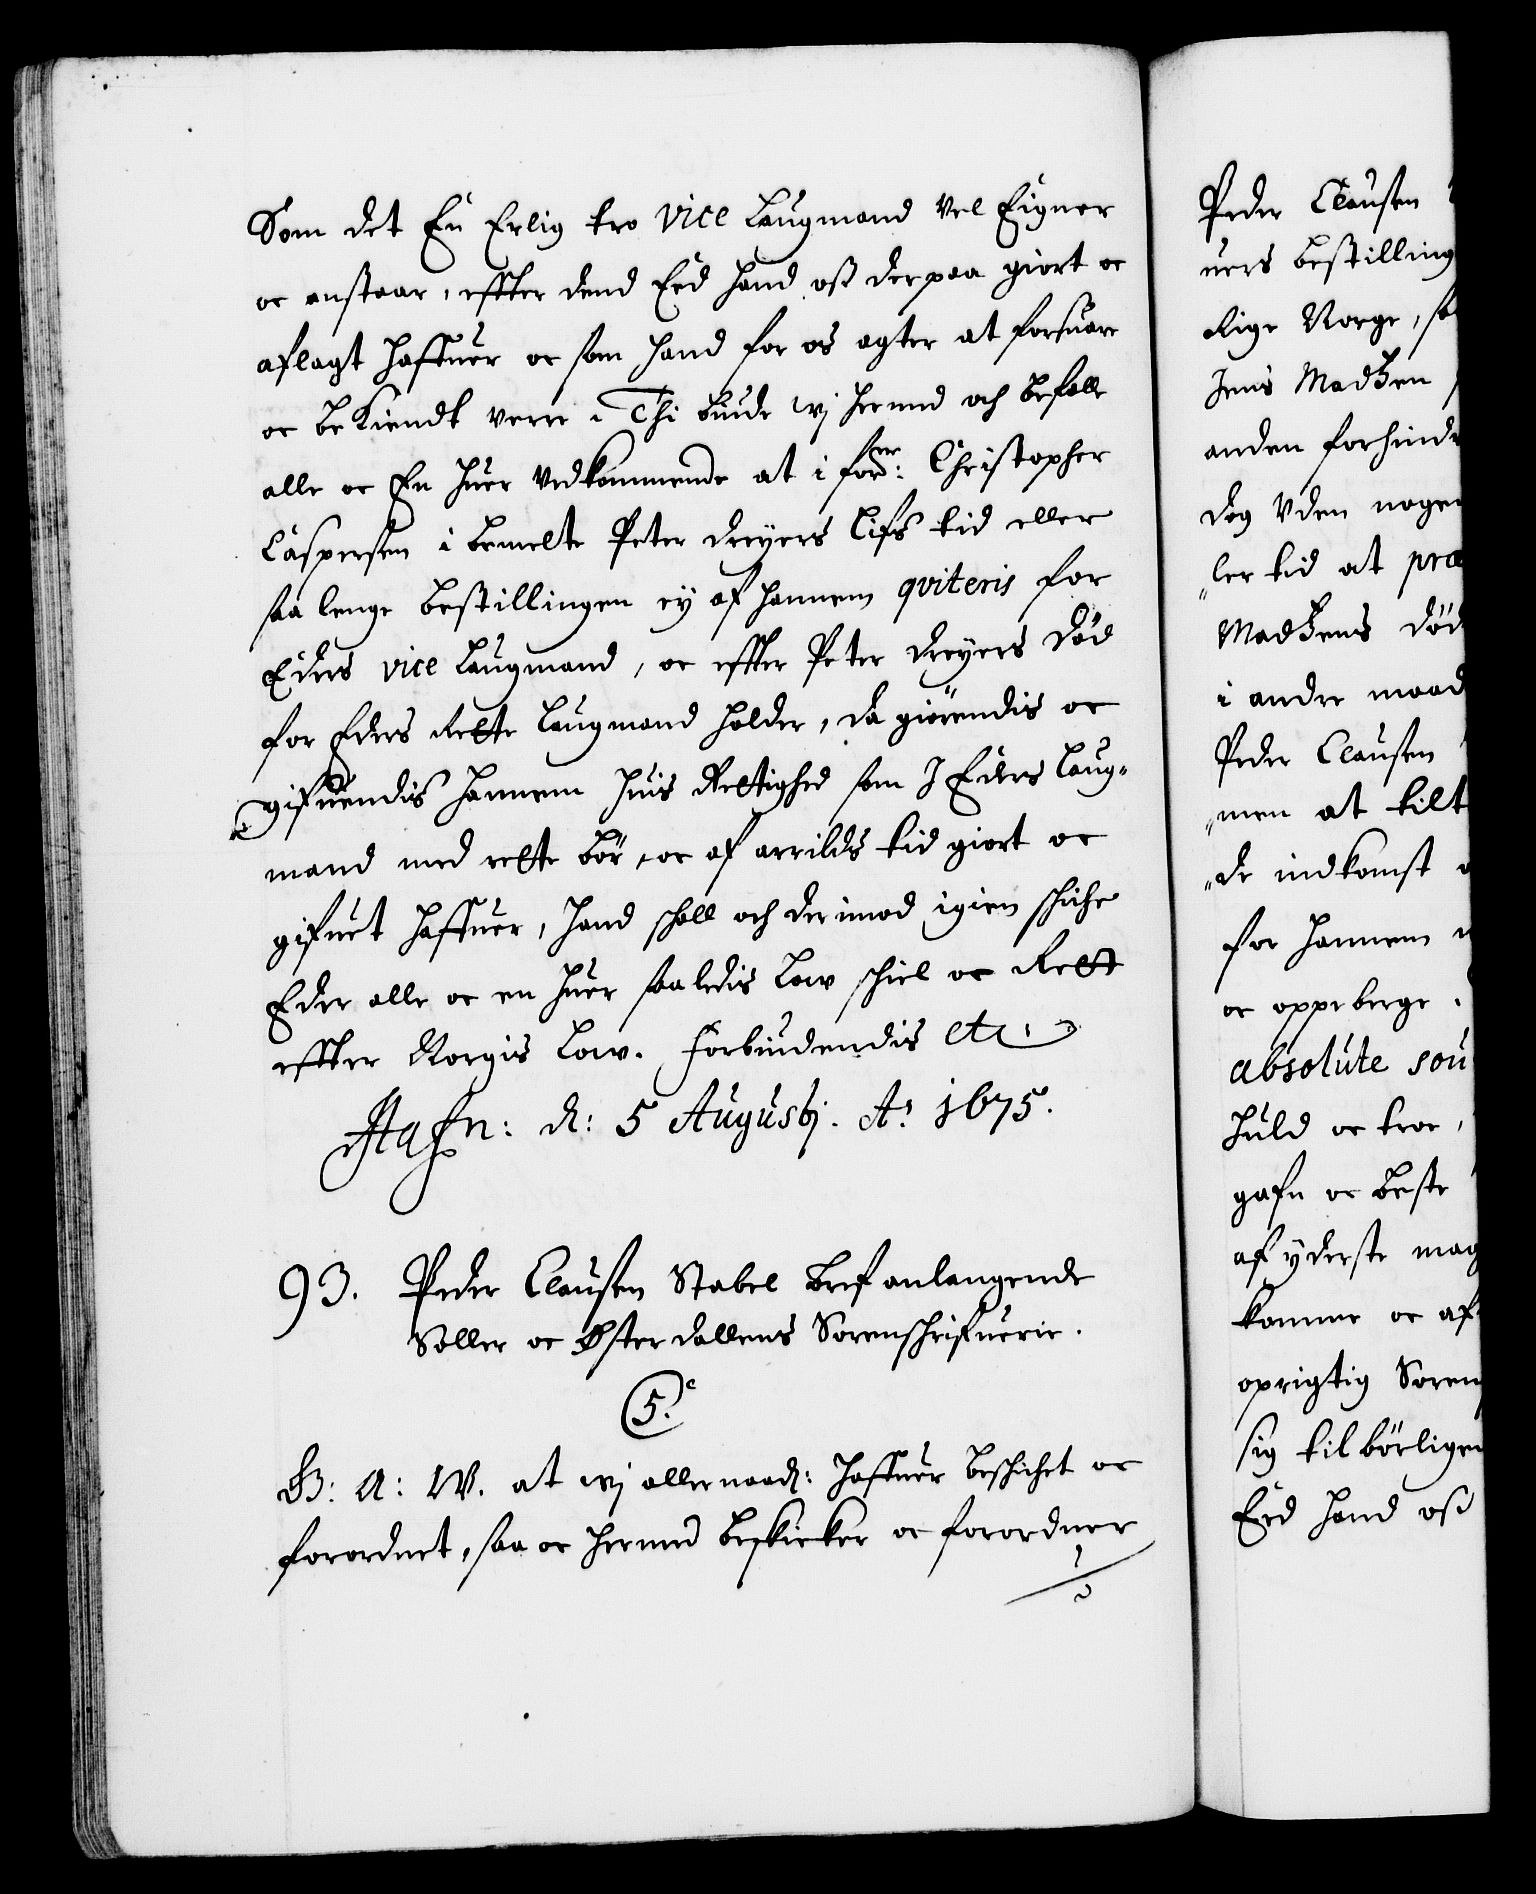 Som det En Erlig tro vice Laugmand vel Eigner
oc anstaar, effter dend Eed hand oß derpaa giort oc
aflagt haffuer oc som hand for os agter at forsuare
oc beKiendt verre. Thi biude wj hermed och befalle
alle oc En huer vedkommende at i forne: Christopher
Caspersen i bemelte Peter Dreyers Lifs tid eller
saa lenge bestillingen ey af hannem qviteris for
Eders vice Laugmand, oc effter Peter Dreyers Død
for Eders Rette Laugmand holder, da giørendis oc
gifuendis hannem huis Rettighed som I Eders Laug-
mand med rette bør, oc af arrilds tid giort oc
gifuet haffuer, hand schall och derimod igien schiche
Eder alle oc en huer saaledis Low schiel oc Rett
effter Norgis Low. Forbiudendis etc.
Hafn: d: 5 Augustj. Ao 1675.
93. Peder Clausen Stabel bref anlangende
Soller oc Østerdallens Sorenschrifuerie.
5.
G: A: W. at wj allernaad: haffuer beschichet oc
forordnet, saa oc hermed beskicker oc forordner
Peder Clausen
uers bestilling
Rige Norge, sa
Jens Madtzen
anden forhind
dog Uden nogen
ler tid at præ
Madtzens Død
i andre maad
Peder Clausen
men at tilt
de indkomst
for hannem
oc oppeberge.
absolute sou
huld oc troe,
gafn oc beste
af yderste mag
komme oc af
oprigtig Soren
sig tilbørligen
Eed hand oß